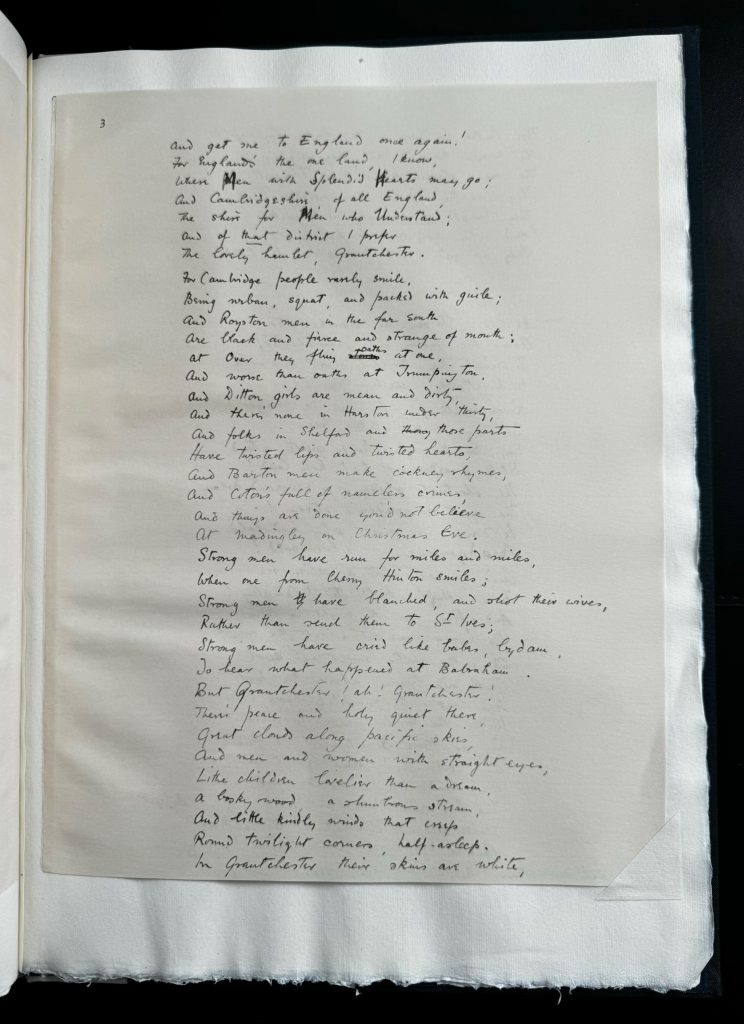 3
And get me to England once again!
For England's the one land, I know,
Where Men with Splendid Hearts may go;
And Cambridgeshire, of all England,
The shire for Men who Understand;
And of that district I prefer
The lovely hamlet, Grantchester.
For Cambridge people rarely smile,
Being urban, squat, and packed with guile;
And Royston men in the far south
Are black and fierce and strange of mouth;
At Over they fling oaths at one,
And worse than oaths at Trumpington,
And Ditton girls are mean and dirty,
And there's none in Harston under thirty,
And folks in Shelford and those parts
Have twisted lips and twisted hearts,
And Barton men make cockney rhymes,
And Coton's full of nameless crimes,
And things are done you'd not believe
At Madingley on Christmas Eve.
Strong men have run for miles and miles,
When one from Cherry Hinton smiles;
Strong men have blanched, and shot their wives,
Rather than send them to St Ives;
Strong men have cried like babes, bydam,
To hear what happened at Babraham.
But Grantchester! ah! Grantchester!
There's peace and holy quiet there,
Great clouds along pacific skies,
And men and women with straight eyes,
Lithe children lovelier than a dream,
A bosky wood, a slumbrous stream,
And little kindly winds that creep
Round twilight corners, half-asleep.
In Grantchester their skins are white,